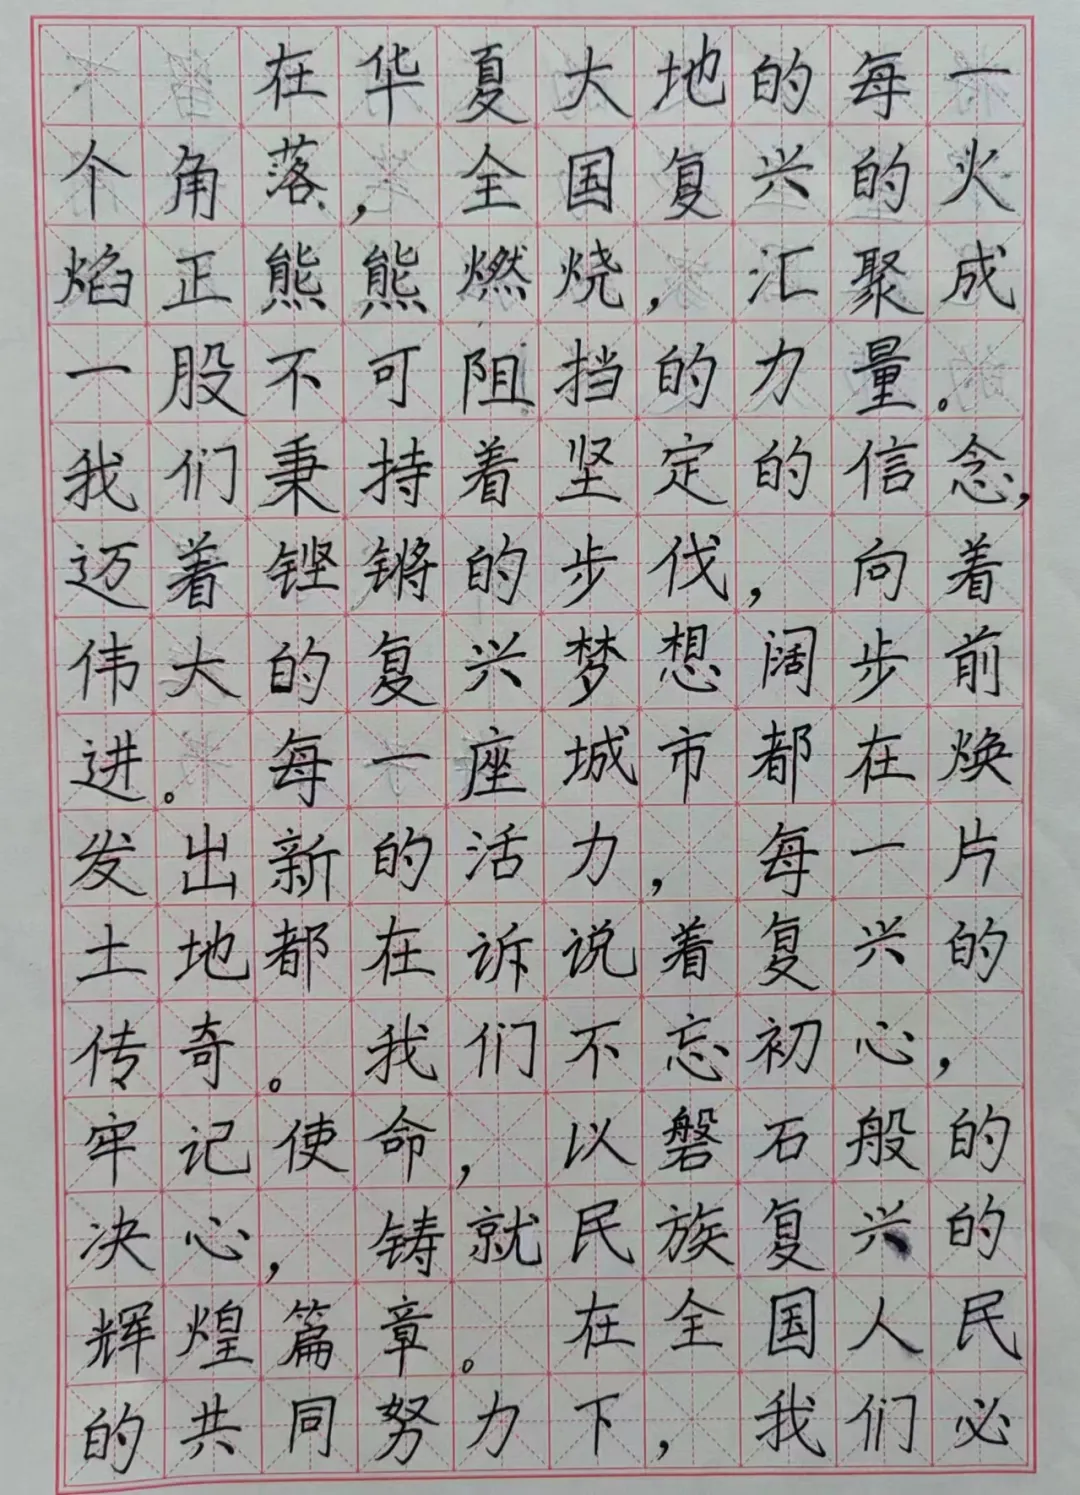 在华夏大地的每一
个角落，全国复兴的火
焰正熊熊燃烧，汇聚成
一股不可阻挡的力量。
我们秉持着坚定的信念，
迈着铿锵的步伐，向着
伟大的复兴梦想阔步前
进。每一座城市都在焕
发出新的活力，每一片
土地都在诉说着复兴的
传奇。我们不忘初心，
牢记使命，以磐石般的
决心，铸就民族复兴的
辉煌篇章。在全国人民
的共同努力下，我们必